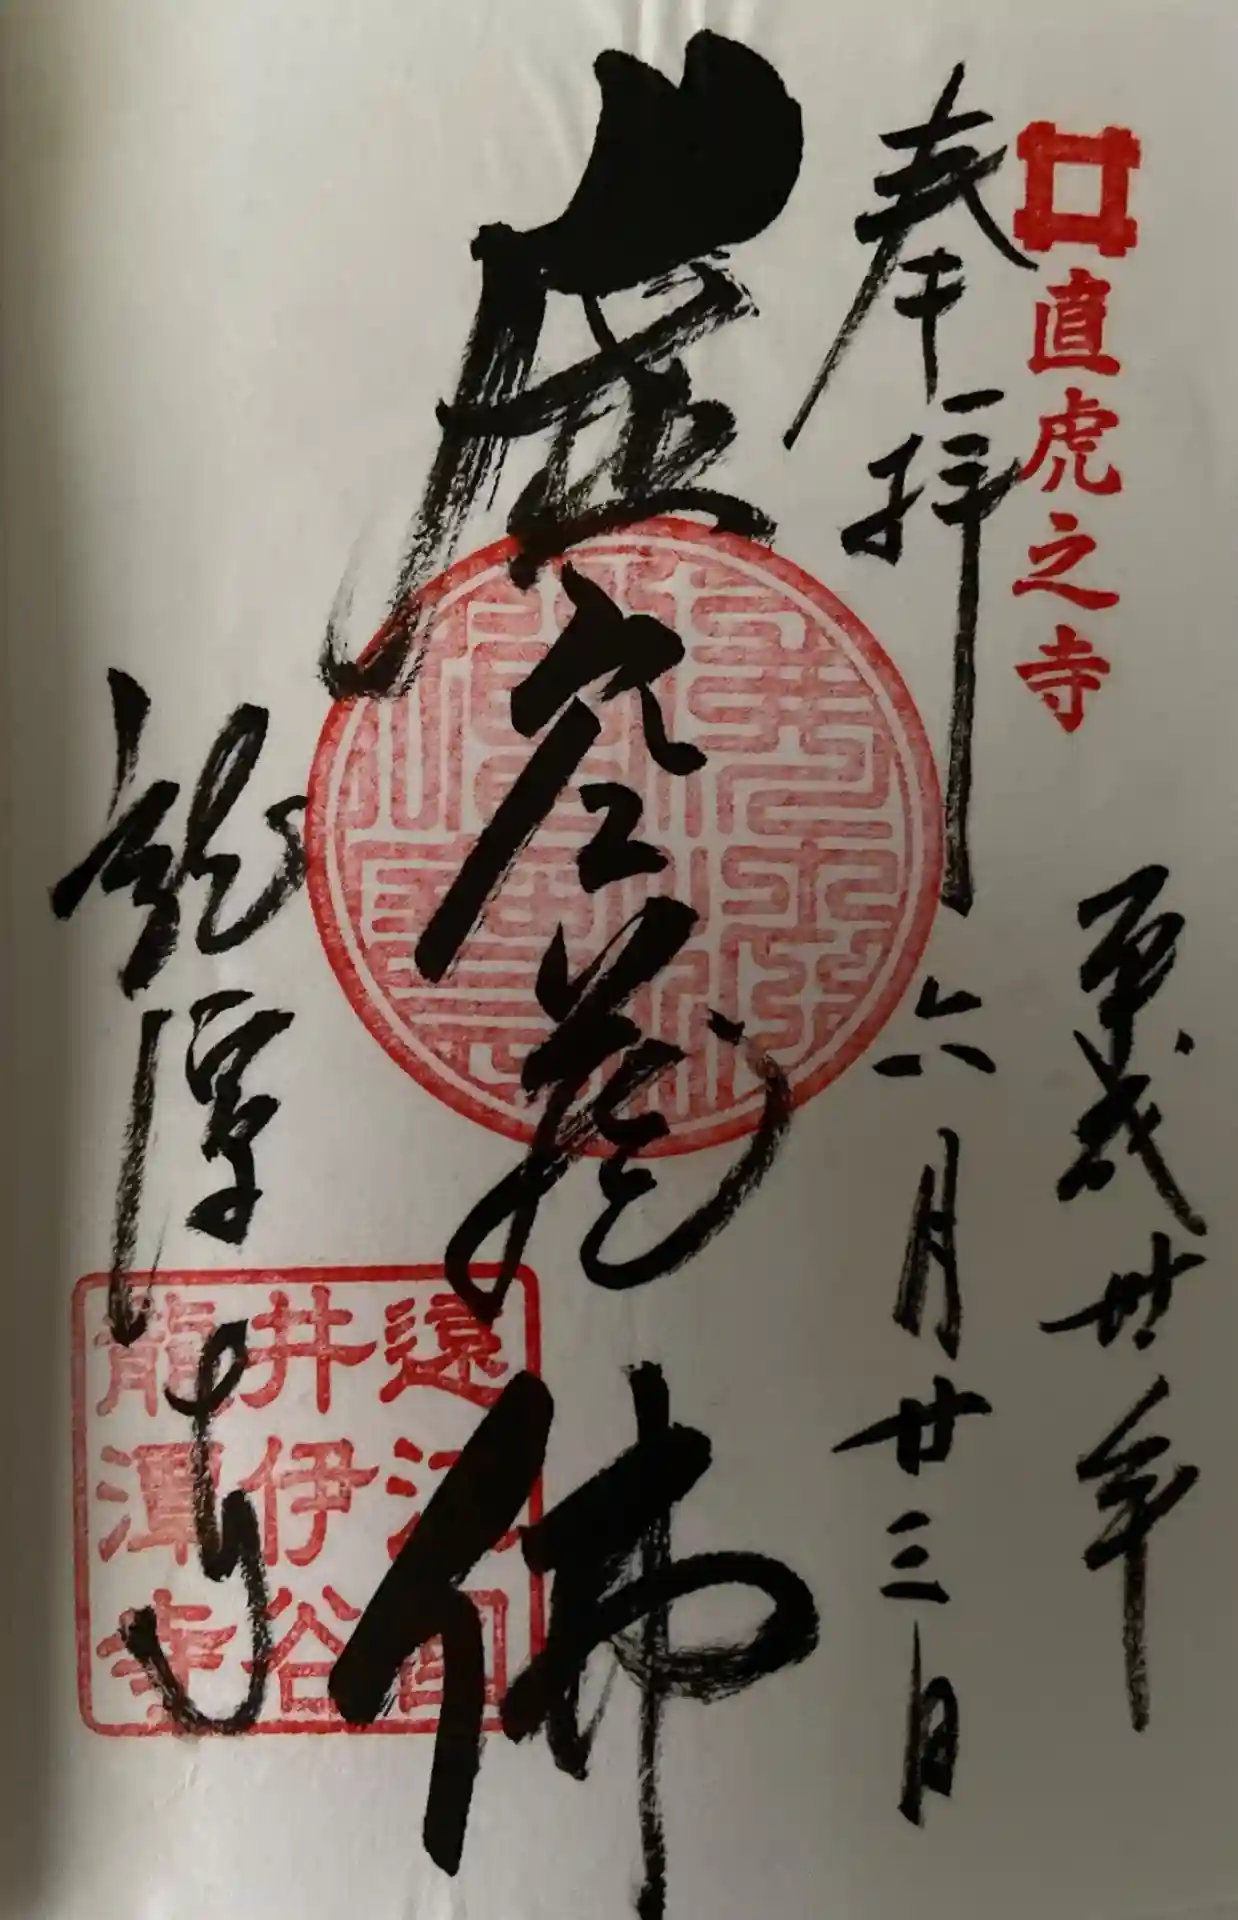 直虎之寺
平成卅年
奉拝
六月廿三日
虚空蔵佛
龍潭寺
遠江国
井伊谷
龍潭寺